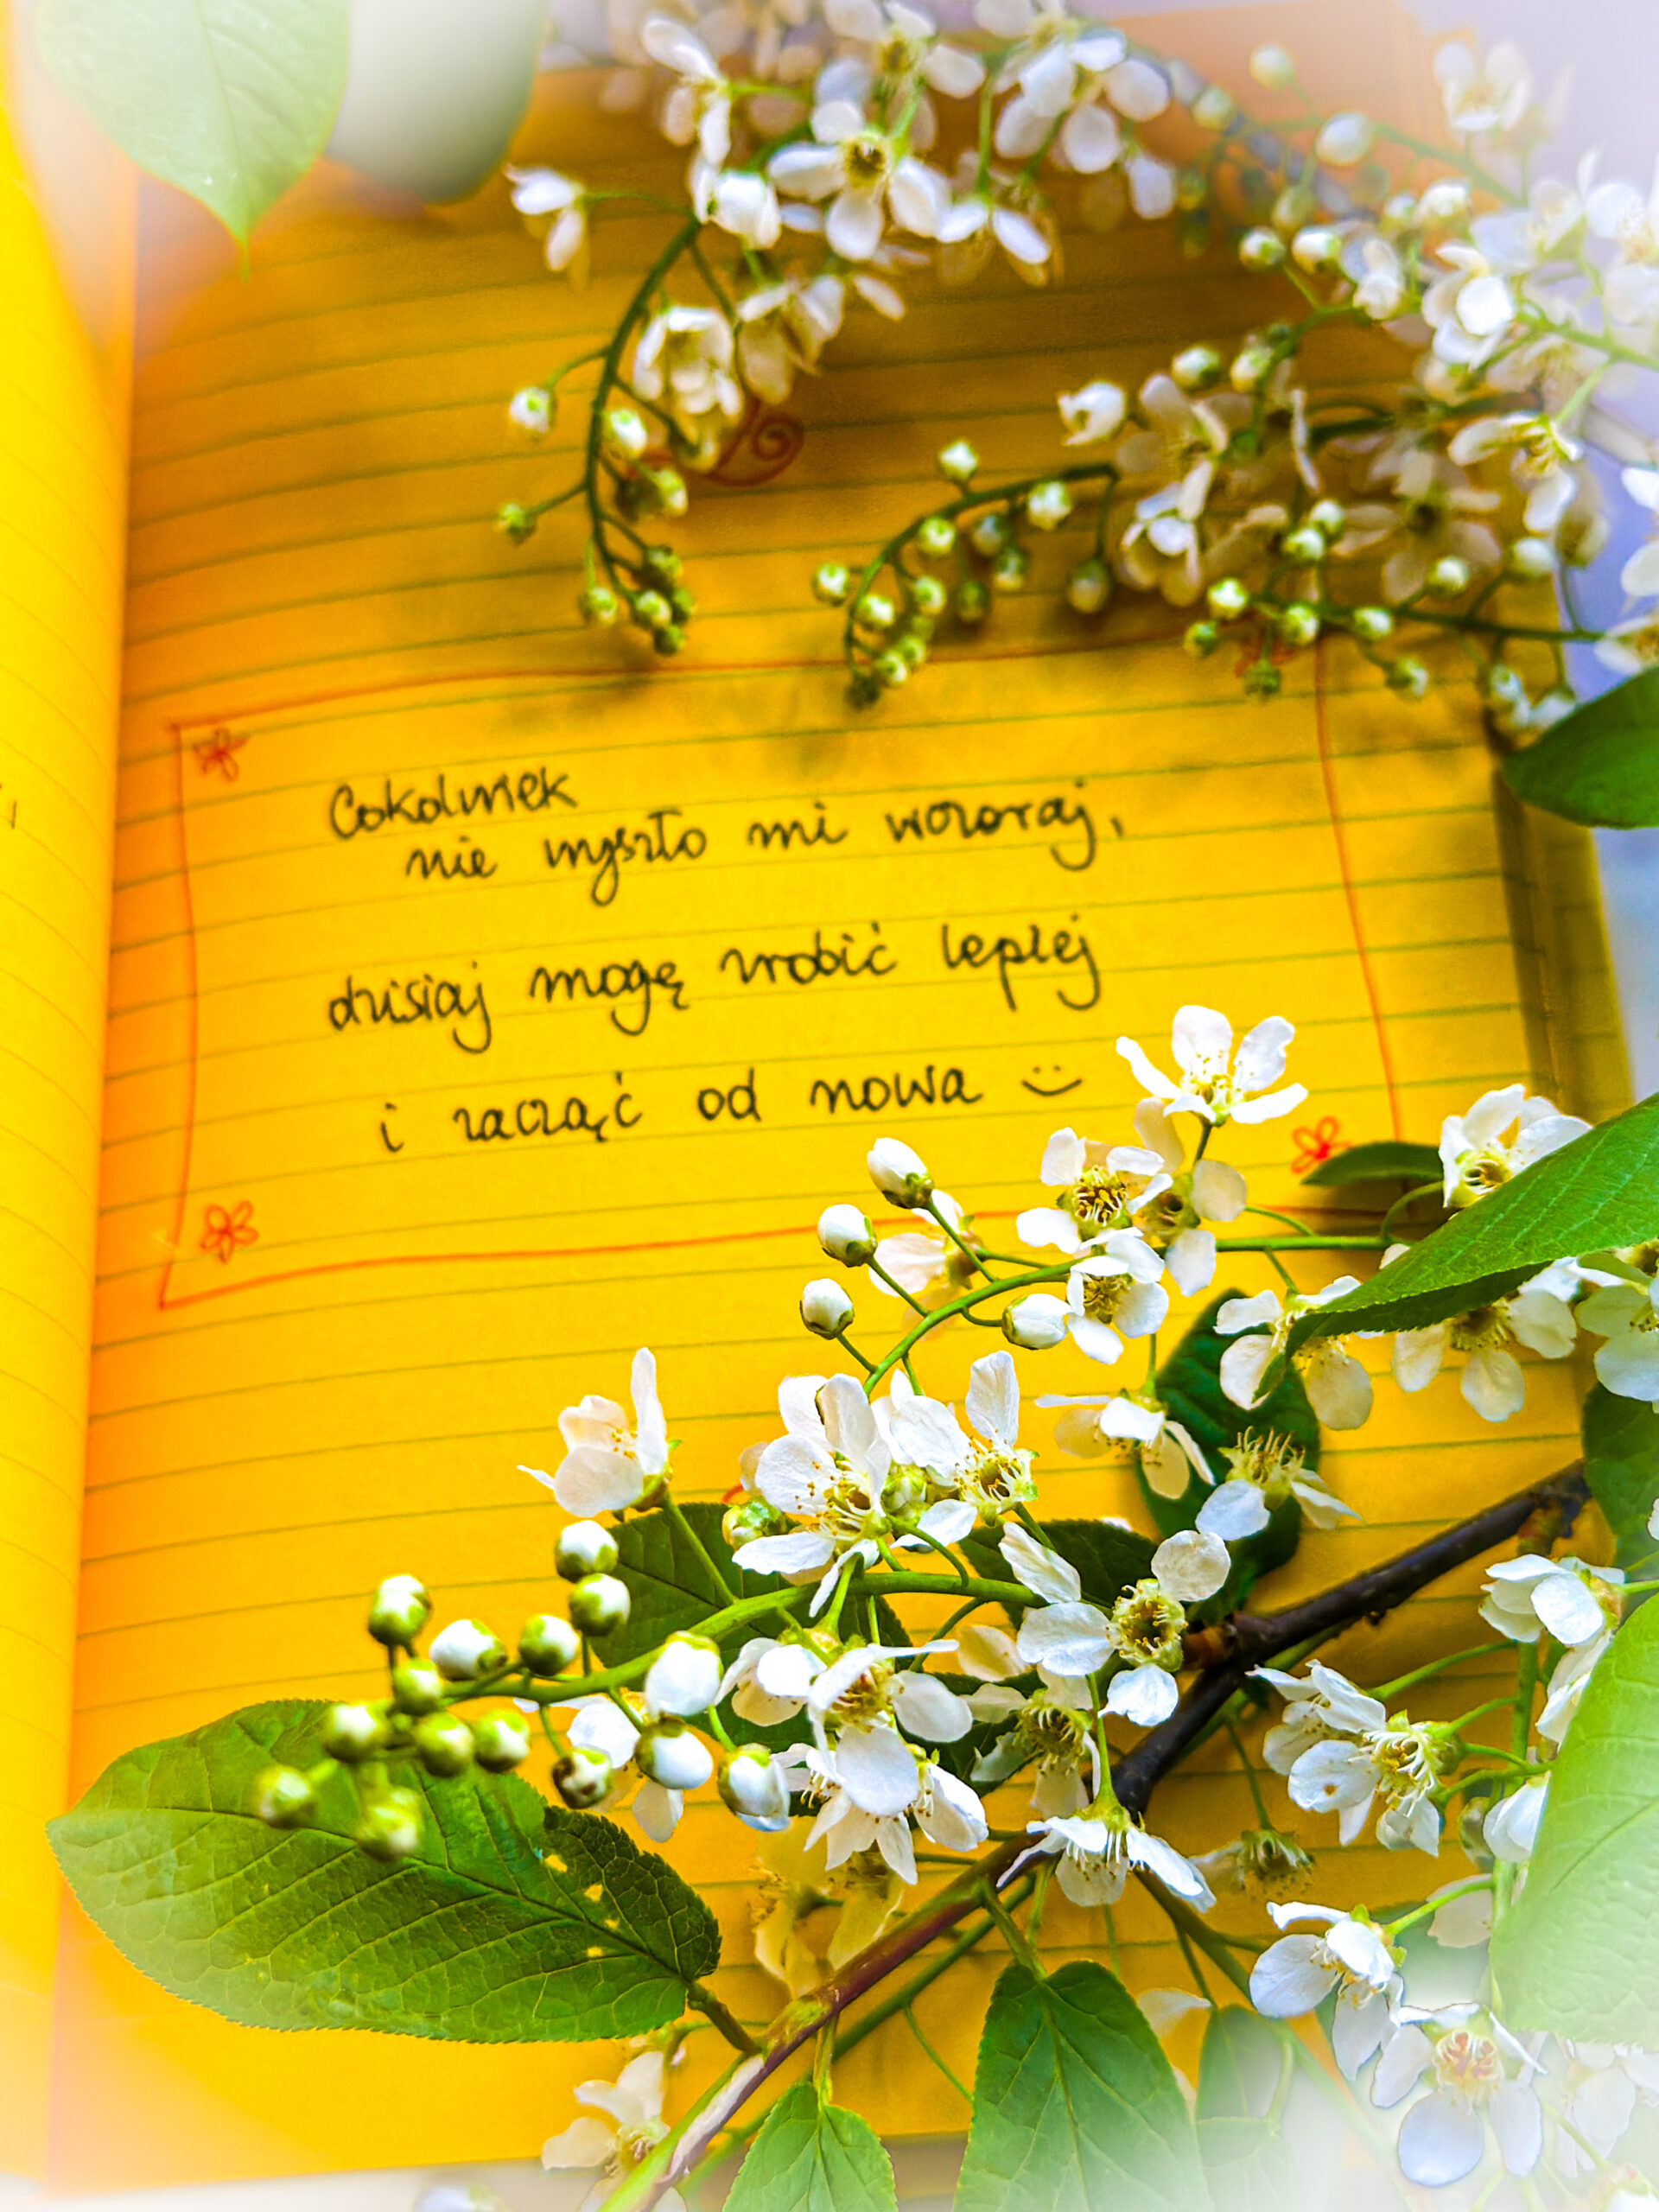 Cokolwiek
nie wyszło mi wczoraj,
dzisiaj mogę zrobić lepiej
i zacząć od nowa :)